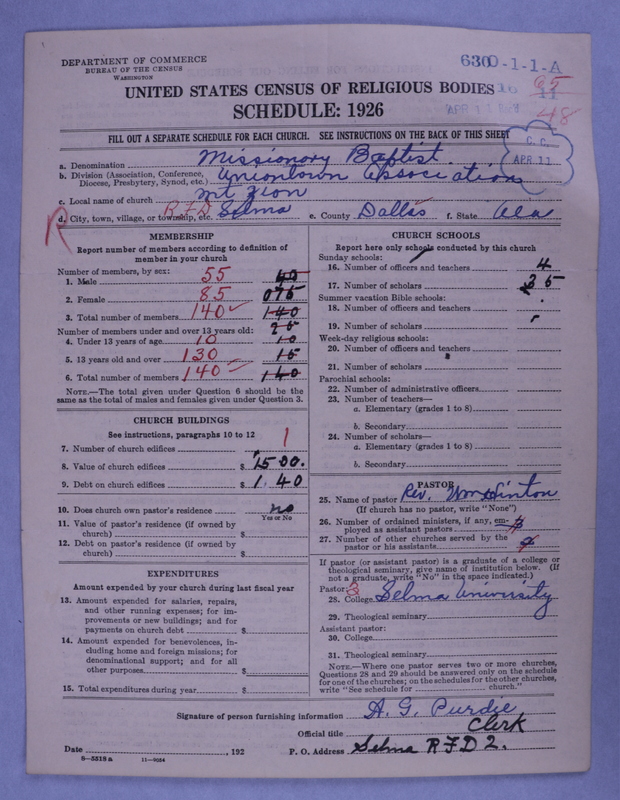 DEPARTMENT OF COMMERCE
BUREAU OF THE CENSUS
WASHINGTON
630 0-1-1-A
UNITED STATES CENSUS OF RELIGIOUS BODIES
16 65
11
SCHEDULE: 1926
APR 11 1928
48
FILL OUT A SEPARATE SCHEDULE FOR EACH CHURCH. SEE INSTRUCTIONS ON THE BACK OF THIS SHEET
C. C.
APR. 11
a. Denomination Missionary Baptist
b. Division (Association, Conference, Diocese, Presbytery, Synod, etc.) Uniontown Association
c. Local name of church Mt Zion
d. City, town, village, or township, etc. RFD Selma e. County Dallas f. State Ala
R
MEMBERSHIP
Report number of members according to definition of
member in your church
Number of members, by sex:
1. Male 55
2. Female 85 075
3. Total number of members 140 140
Number of members under and over 13 years old:
4. Under 13 years of age 10 10
5. 13 years old and over 130 15
6. Total number of members 140 140
NOTE.—The total given under Question 6 should be the
same as the total of males and females given under Question 3.
CHURCH BUILDINGS
See instructions, paragraphs 10 to 12
7. Number of church edifices 1
8. Value of church edifices $ 1500.
9. Debt on church edifices $ 1.40
10. Does church own pastor's residence no
Yes or No
11. Value of pastor's residence (if owned by
church) $
12. Debt on pastor's residence (if owned by
church) $
EXPENDITURES
Amount expended by your church during last fiscal year
13. Amount expended for salaries, repairs,
and other running expenses; for im-
provements or new buildings; and for
payments on church debt $
14. Amount expended for benevolences, in-
cluding home and foreign missions; for
denominational support; and for all
other purposes $
15. Total expenditures during year $
CHURCH SCHOOLS
Report here only schools conducted by this church
Sunday schools:
16. Number of officers and teachers 4
17. Number of scholars 35
Summer vacation Bible schools:
18. Number of officers and teachers
19. Number of scholars
Week-day religious schools:
20. Number of officers and teachers
21. Number of scholars
Parochial schools:
22. Number of administrative officers
23. Number of teachers—
a. Elementary (grades 1 to 8)
b. Secondary
24. Number of scholars—
a. Elementary (grades 1 to 8)
b. Secondary
PASTOR
25. Name of pastor Rev. Wm Hinton
(If church has no pastor, write "None")
26. Number of ordained ministers, if any, em-
ployed as assistant pastors
27. Number of other churches served by the
pastor or his assistants
If pastor (or assistant pastor) is a graduate of a college or
theological seminary, give name of institution below. (If
not a graduate, write "No" in the space indicated.)
Pastor: 3
28. College Selma University
29. Theological seminary
Assistant pastor:
30. College
31. Theological seminary
NOTE.—Where one pastor serves two or more churches,
Questions 28 and 29 should be answered only on the schedule
for one of the churches; on the schedules for the other churches,
write "See schedule for church."
Signature of person furnishing information A. G. Purdie
Official title Clerk
Date , 192 P. O. Address Selma RFD 2.
8—5518 a 11—9054